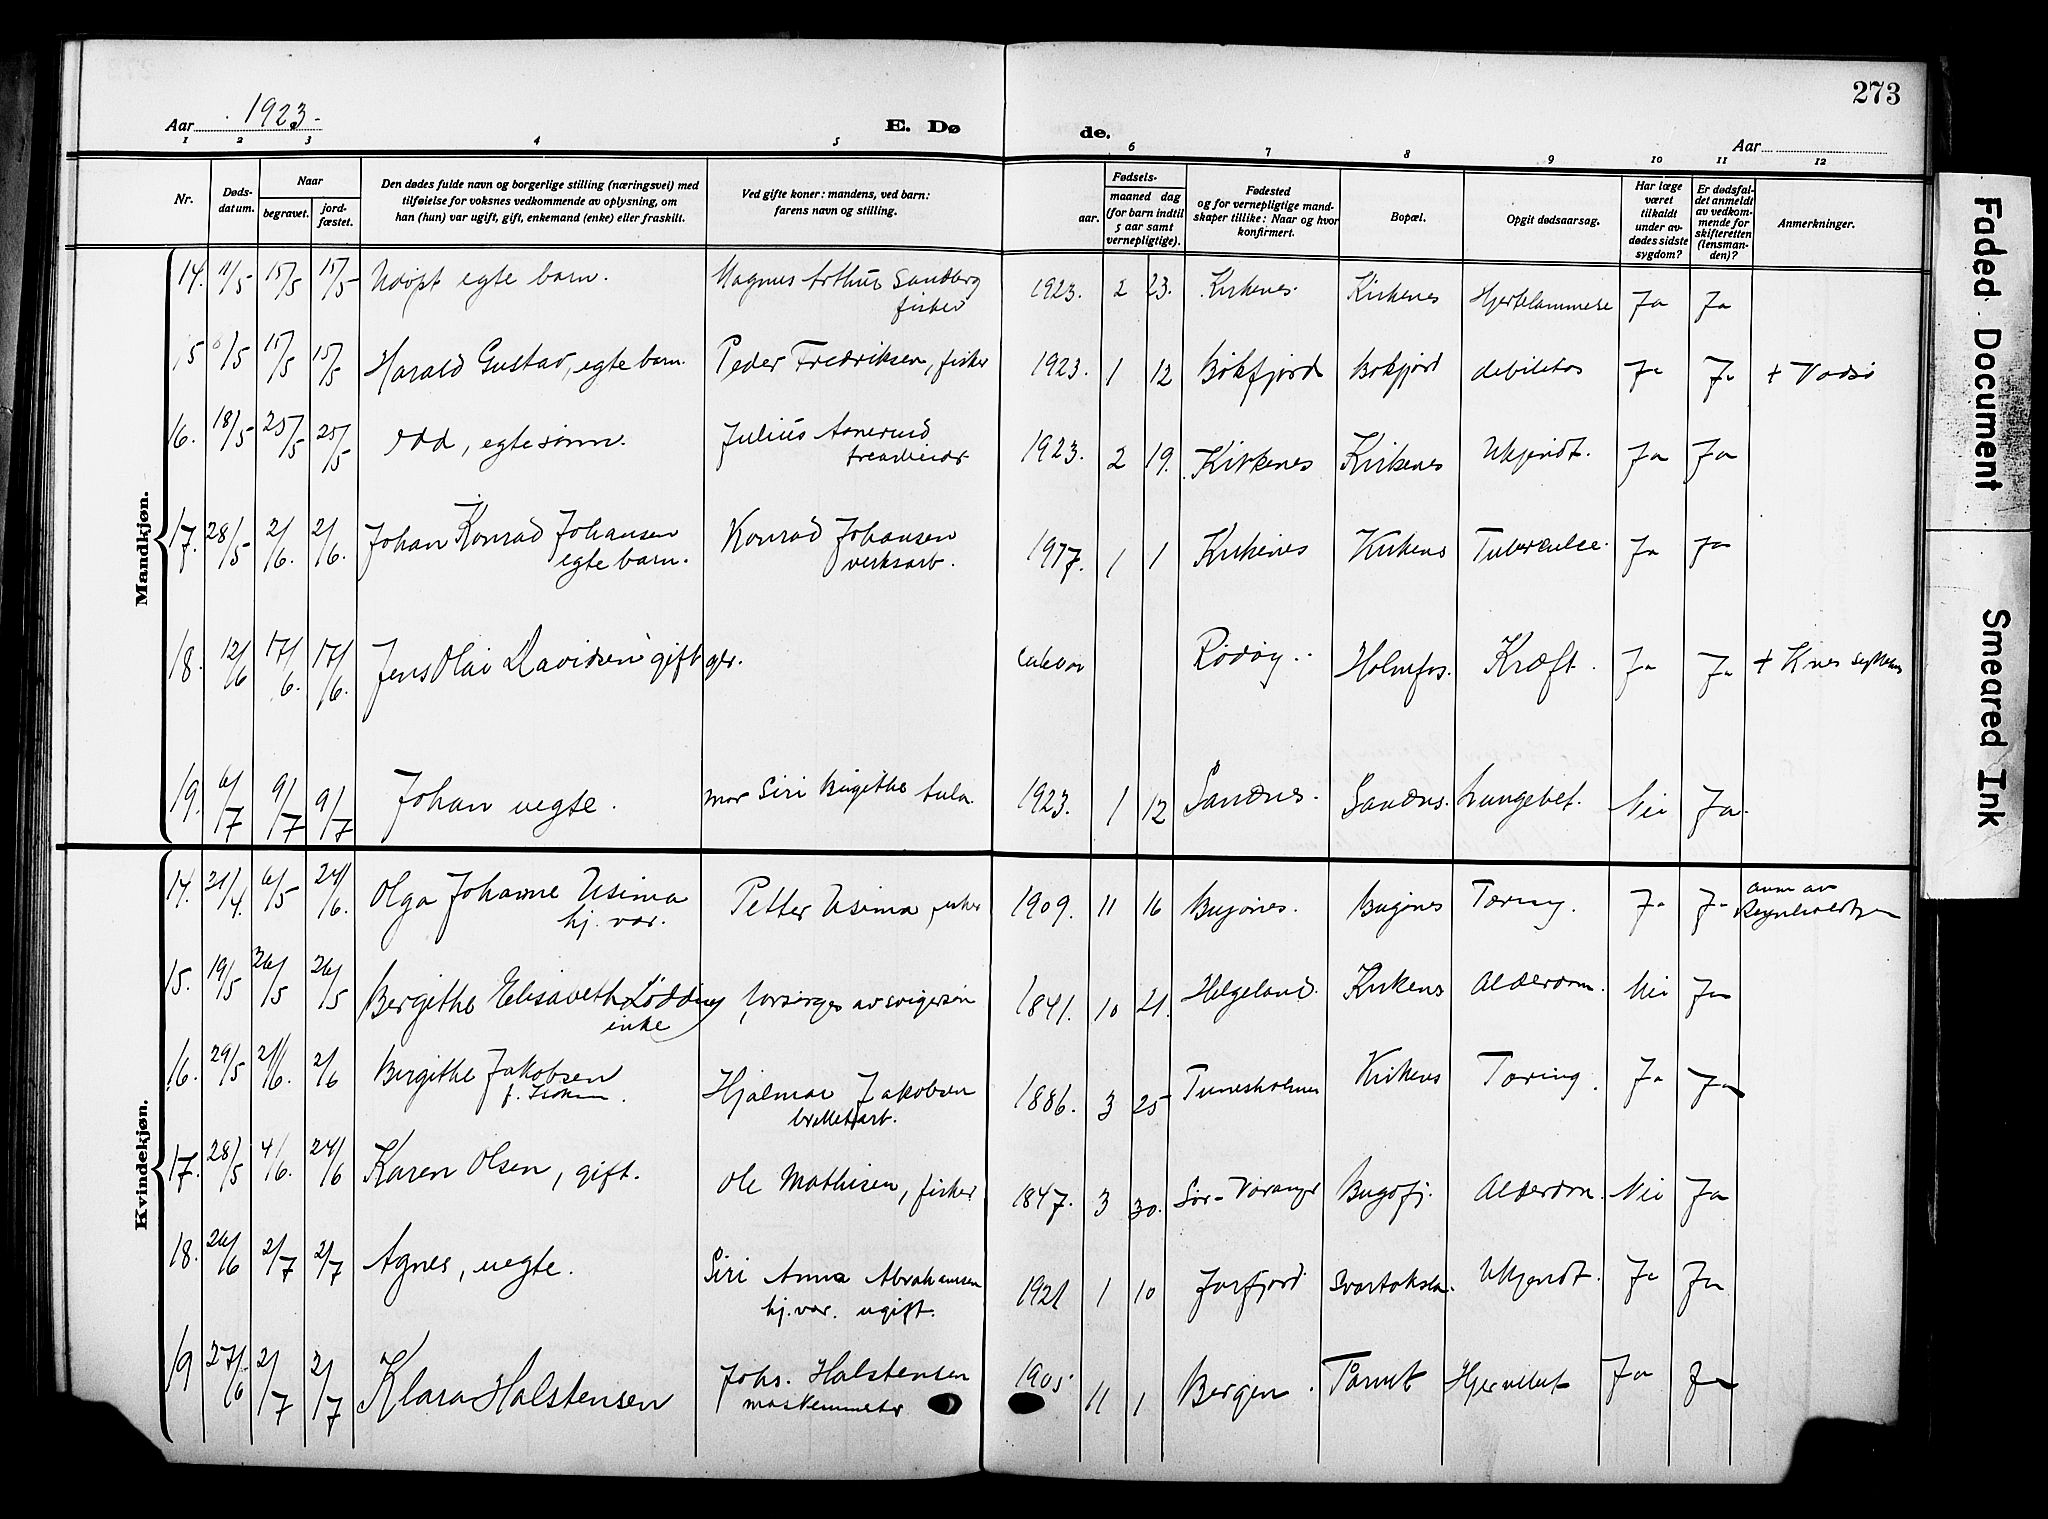 273
Aar 1923.
E. Dø
de.
Aar
1 2 3 4 5 6 7 8 9 10 11 12
Nr.
Døds-
datum.
Naar
begravet.
jord-
fæstet.
Den dødes fulde navn og borgerlige stilling (næringsvei) med
tilføielse for voksnes vedkommende av oplysning, om
han (hun) var ugift, gift, enkemand (enke) eller fraskilt.
Ved gifte koner: mandens, ved barn:
farens navn og stilling.
Fødsels-
aar.
maaned dag
(for barn indtil
5 aar samt
vernepligtige).
Fødested
og for vernepligtige mand-
skaper tillike: Naar og hvor
konfirmert.
Bopæl.
Opgit dødsaarsag.
Har læge
været
tilkaldt
under av-
dødes sidste
sygdom?
Er dødsfal-
det anmeldt
av vedkom-
mende for
skifteretten
(lensman-
den)?
Anmerkninger.
Mandkjøn.
14. 11/5 15/5 15/5 Udøpt egte barn. Magnus Arthur Sandberg 1923. 2 23. Kirkenes. Kirkenes Hjertelammelse Ja Ja
fisker
15 /5 15/5 15/5 Harald Gustav, egte barn. Peder Fredriksen, fisker 1923. 1 12 Bökfjord Bökfjord debilitas Ja Ja + Vadsö
16. 18/5 25/5 25/5 Odd, egte sönn. Julius Aanerud 1923. 2 19. Kirkenes Kirkenes Ukjendt. Ja Ja
17. 28/5 2/6. 2/6. Johan Konrad Johansen Konrad Johansen 1917. 1 1 Kirkenes Kirkenes Tuberculose. Ja Ja
egte barn. verksarb.
18. 12/6 17/6. 17/6. Jens Olai Davidsen gift Rödöy. Holmfos. Kræft. Ja Ja
19. 6/7 9/7 9/7 Johan uegte. mor Siri Birgithe 1923. 1 12 Sandnes. Sandnes. Lungebet. Nei Ja.
Kvindekjøn.
14. 21/4. 6/5 24/6. Olga Johanne Usima Petter Usima fisker 1909. 11 16 Bugönes. Bugönes Tæring. Ja Ja anm av
hj. vær.
15. 19/5 26/5 26/5 Bergithe Elisabeth Lödding forsörges av svigersön 1841. 10 21. Helgeland. Kirkenes Alderdom. Nei Ja
enke
16. 29/5 2/6. 2/6 Birgithe Jakobsen Hjalmar Jakobsen 1886. 3 25 Kirkenes Tæring. Ja Ja
17. 28/5 4/6. 24/6 Karen Olsen, gift. Ole Mathisen, fisker 1847. 3 30. Sör-Varanger Bugöfj. Alderdom. Nei Ja
18. 26/6 2/7 2/7 Agnes, uegte. Siri Anna Abrahamsen 1921 1 10 Jarfjord Ukjendt. Ja Ja
hj. vær. ugift.
19 27/6 2/7 2/7 Klara Halstensen Johs. Halstensen 1905 11 1 Bergen. Tårnet Hjernebet Ja Ja
Faded Document
Smeared Ink